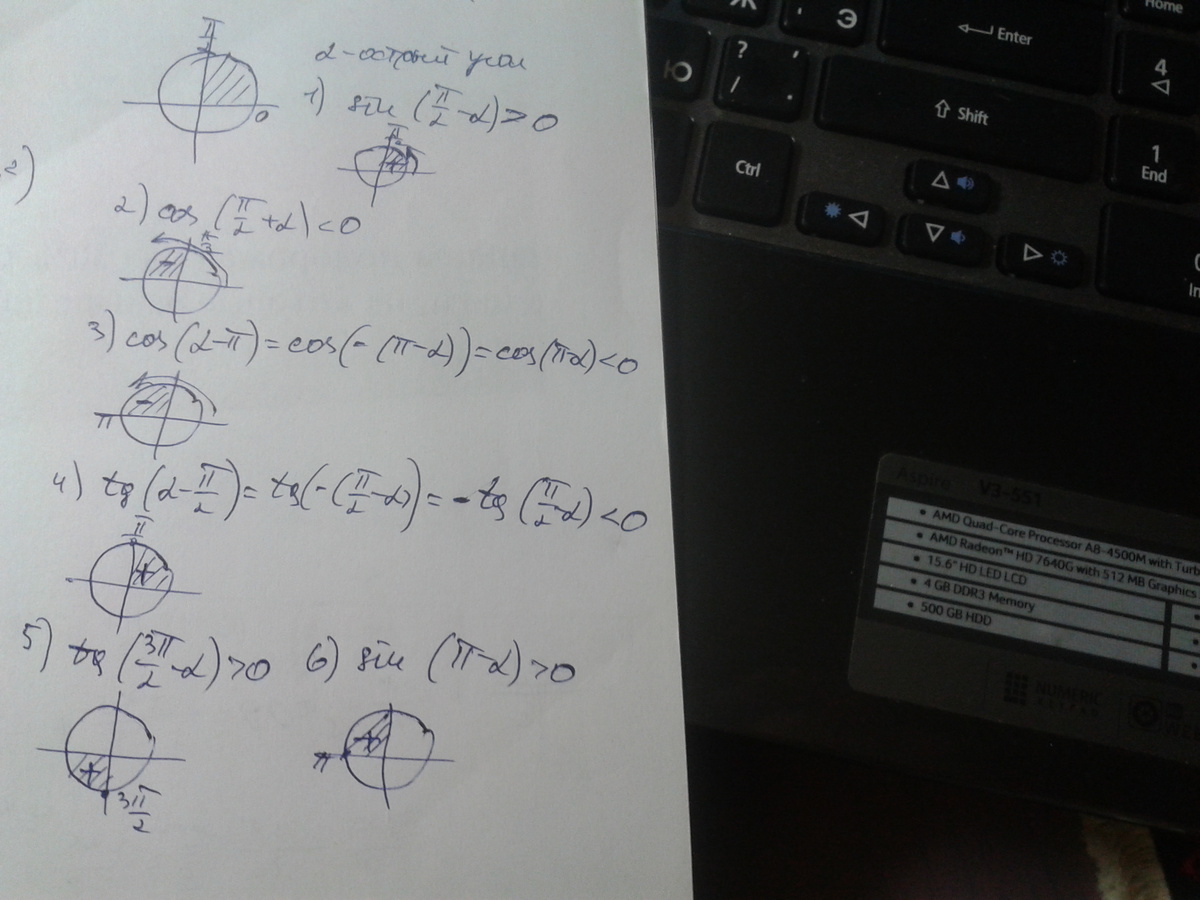 π/2
0
α-острый угол
1) sin (π/2 - α) > 0
π/2
+
2) cos (π/2 + α) < 0
π/2
3) cos (α-π) = cos (- (π-α)) = cos (π-α) < 0
π
-
4) tg (α - π/2) = tg (- (π/2 - α)) = - tg (π/2 - α) < 0
π/2
+
5) tg (3π/2 - α) > 0
+
3π/2
6) sin (π-α) > 0
+
π
Ж
Э
Enter
Home
Ю
? ,
/ .
Shift
4
Ctrl
1
End
Aspire V3-551
• AMD Quad-Core Processor A8-4500M with Turb
• AMD Radeon™ HD 7640G with 512 MB Graphics
• 15.6" HD LED LCD
• 4 GB DDR3 Memory
• 500 GB HDD